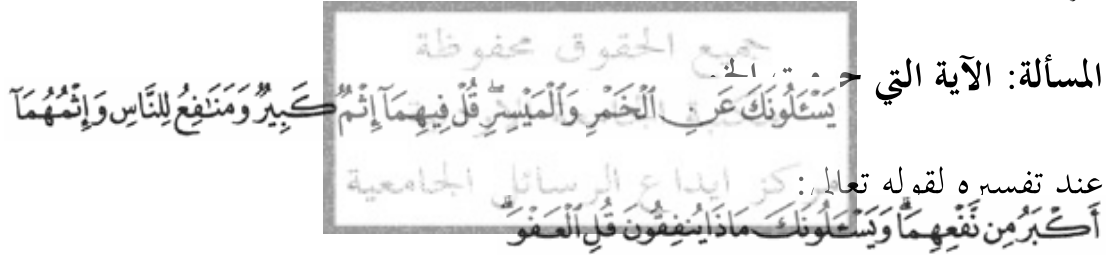 جميع الحقوق محفوظة
المسألة: الآية التي حرمت الخمر
يَسْـَٔلُونَكَ عَنِ ٱلْخَمْرِ وَٱلْمَيْسِرِۖ قُلْ فِيهِمَآ إِثْمٌ كَبِيرٌ وَمَنَـٰفِعُ لِلنَّاسِ وَإِثْمُهُمَآ
عند تفسيره لقوله تعالى:
مركز ايداع الرسائل الجامعية
أَكْبَرُ مِن نَّفْعِهِمَاۗ وَيَسْـَٔلُونَكَ مَاذَا يُنفِقُونَ قُلِ ٱلْعَفْوَۗ